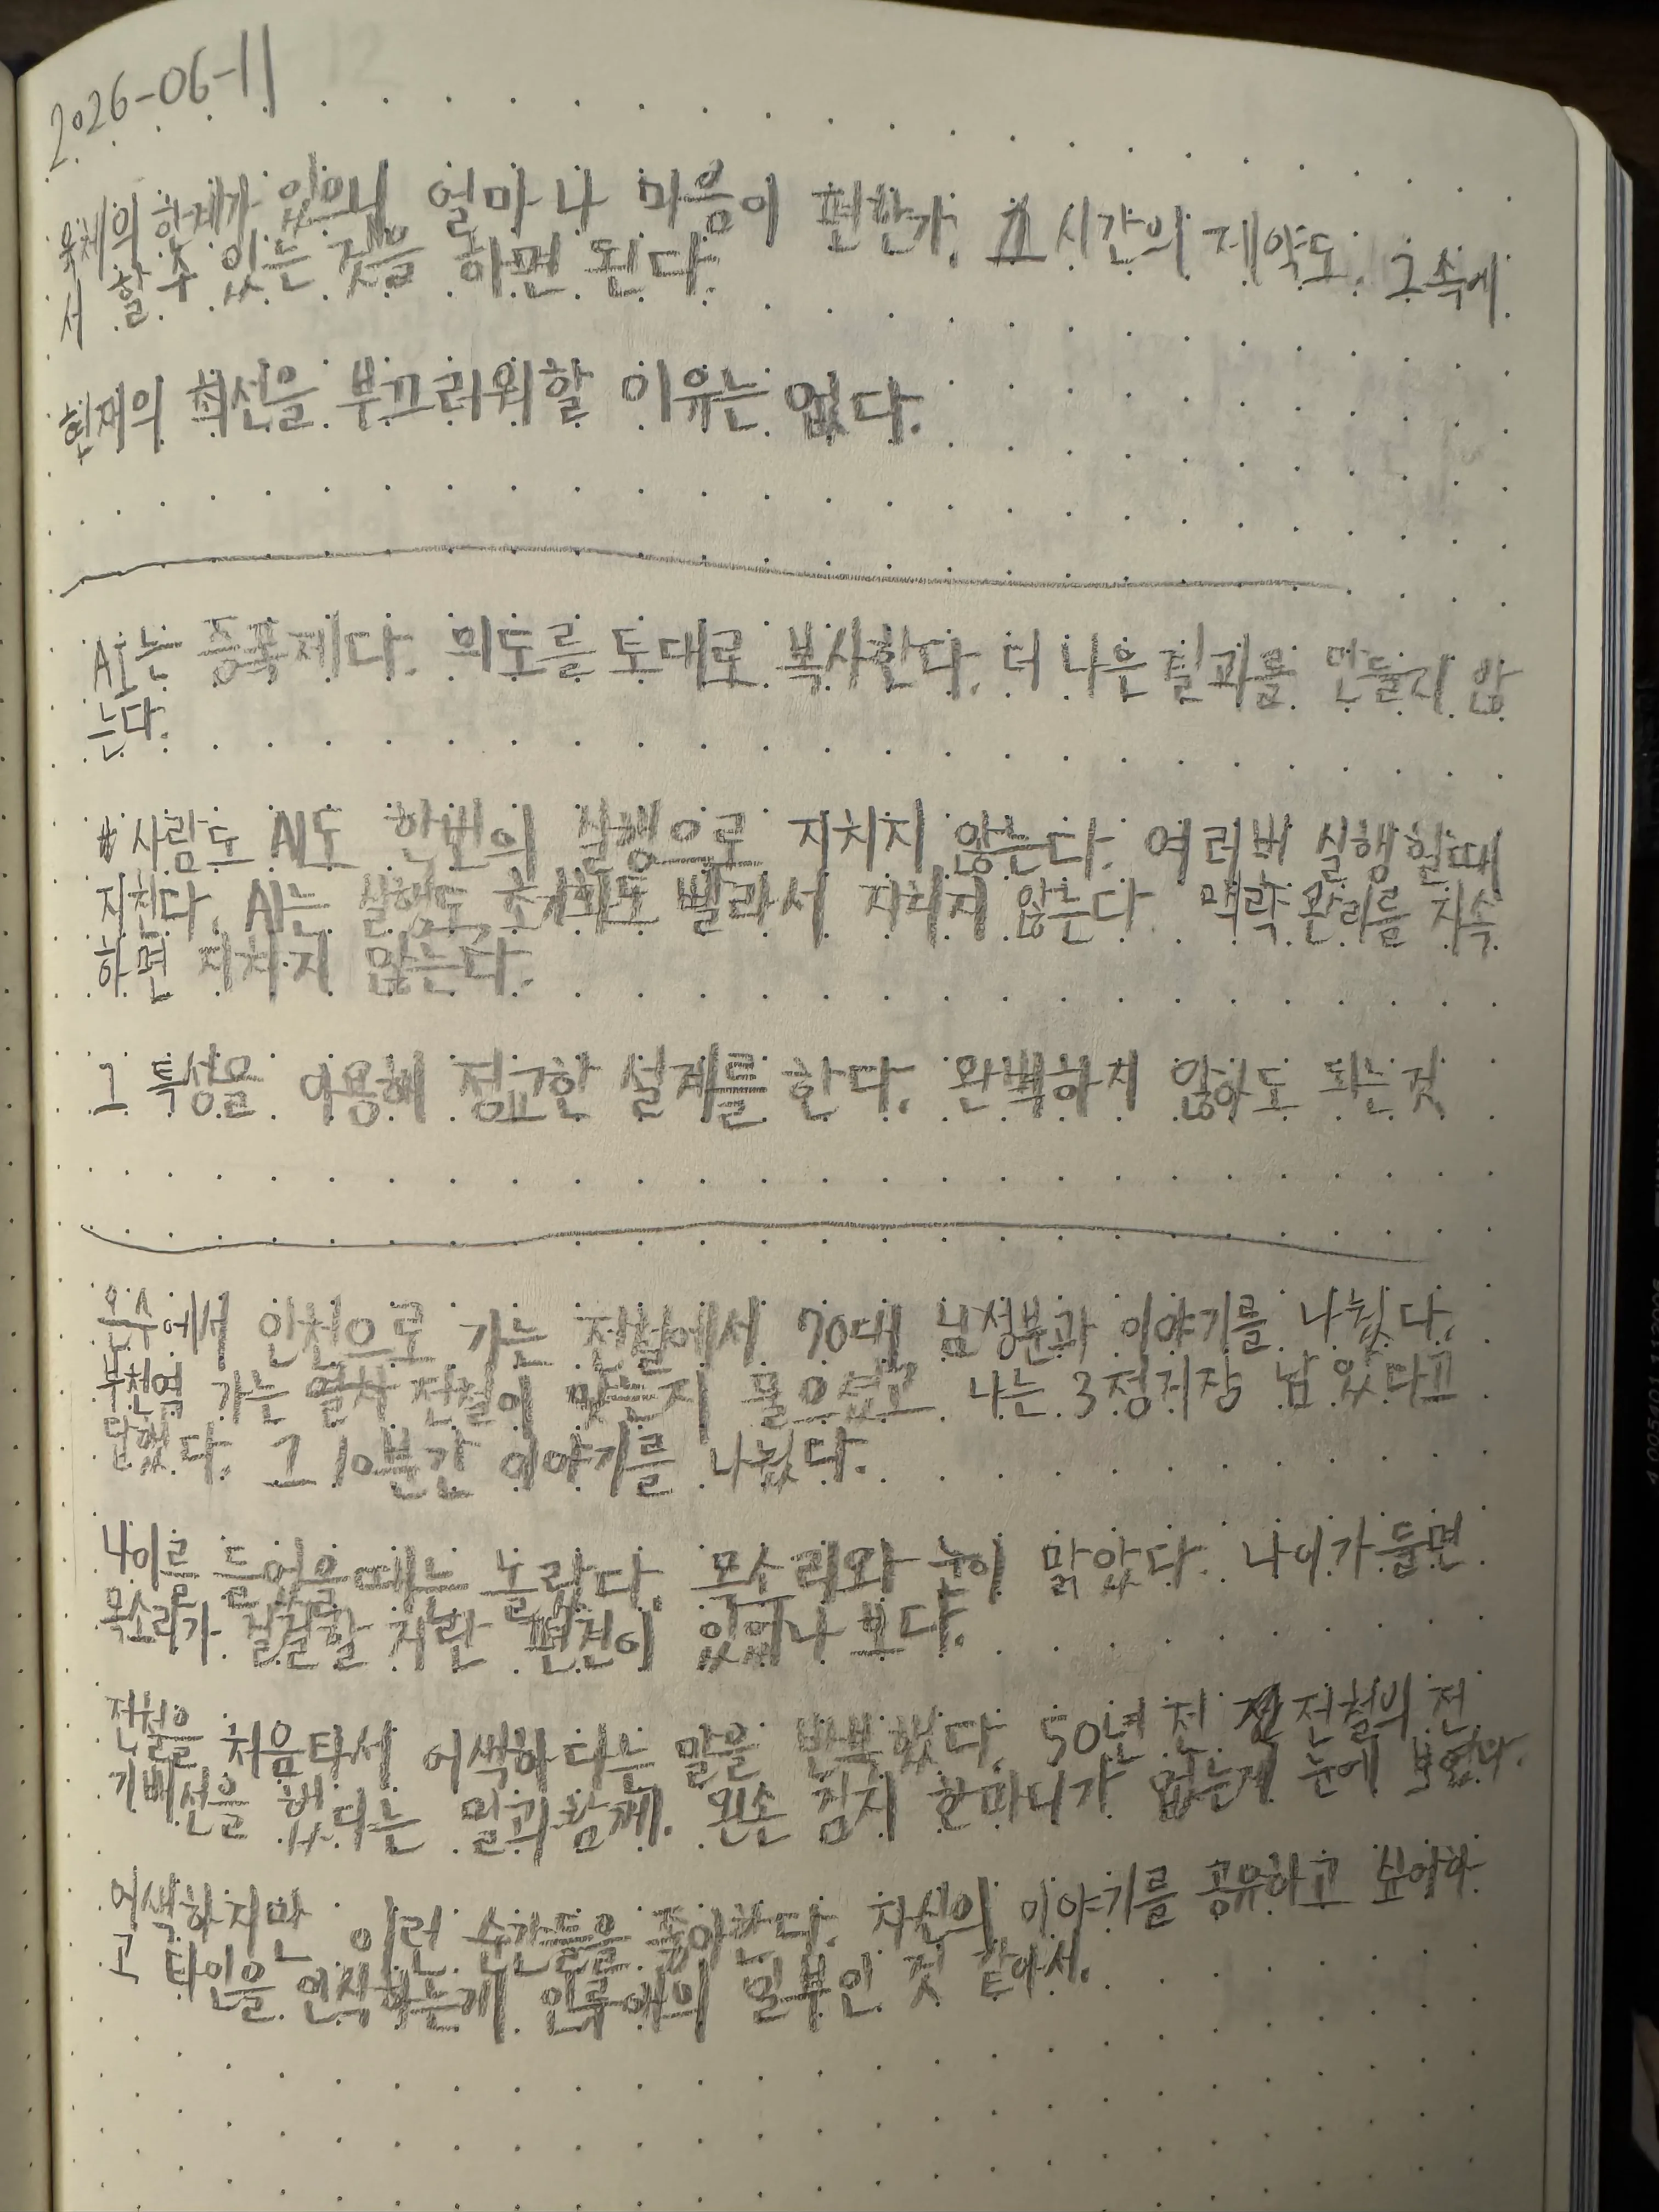 2026-06-11
육체의 한계가 있으니 얼마나 마음이 편한가. 시간의 제약도. 그 속에
서 할 수 있는 것을 하면 된다.
현재의 최선을 부끄러워할 이유는 없다.
AI는 증폭제다. 의도를 토대로 복사한다. 더 나은 결과를 만들지 않
는다.
사람도 AI도 한번의 실행으로 지치지 않는다. 여러번 실행할때
지친다. AI는 실행도, 초기화도 빨라서 지치지 않는다. 맥락 관리를 지속
하면 지치지 않는다.
그 특성을 이용해 정교한 설계를 한다. 완벽하지 않아도 되는 것
온수에서 인천으로 가는 전철에서 70대 남성분과 이야기를 나눴다.
부천역 가는 열차 전철이 맞는지 물으셨고 나는 3정거장 남았다고
답했다. 그 10분간 이야기를 나눴다.
나이를 들었을때는 놀랐다. 목소리와 눈이 맑았다. 나이가 들면
목소리가 걸걸할 거란 편견이 있었나 보다.
전철을 처음타서 어색하다는 말을 반복했다. 50년 전 전철의 전
기배선을 했다는 말과 함께. 왼손 검지 한마디가 없는게 눈에 보였다.
어색하지만 이런 순간들을 좋아한다. 자신의 이야기를 공유하고 싶어하
고 타인을 인식하는게 인류애의 일부인 것 같아서.